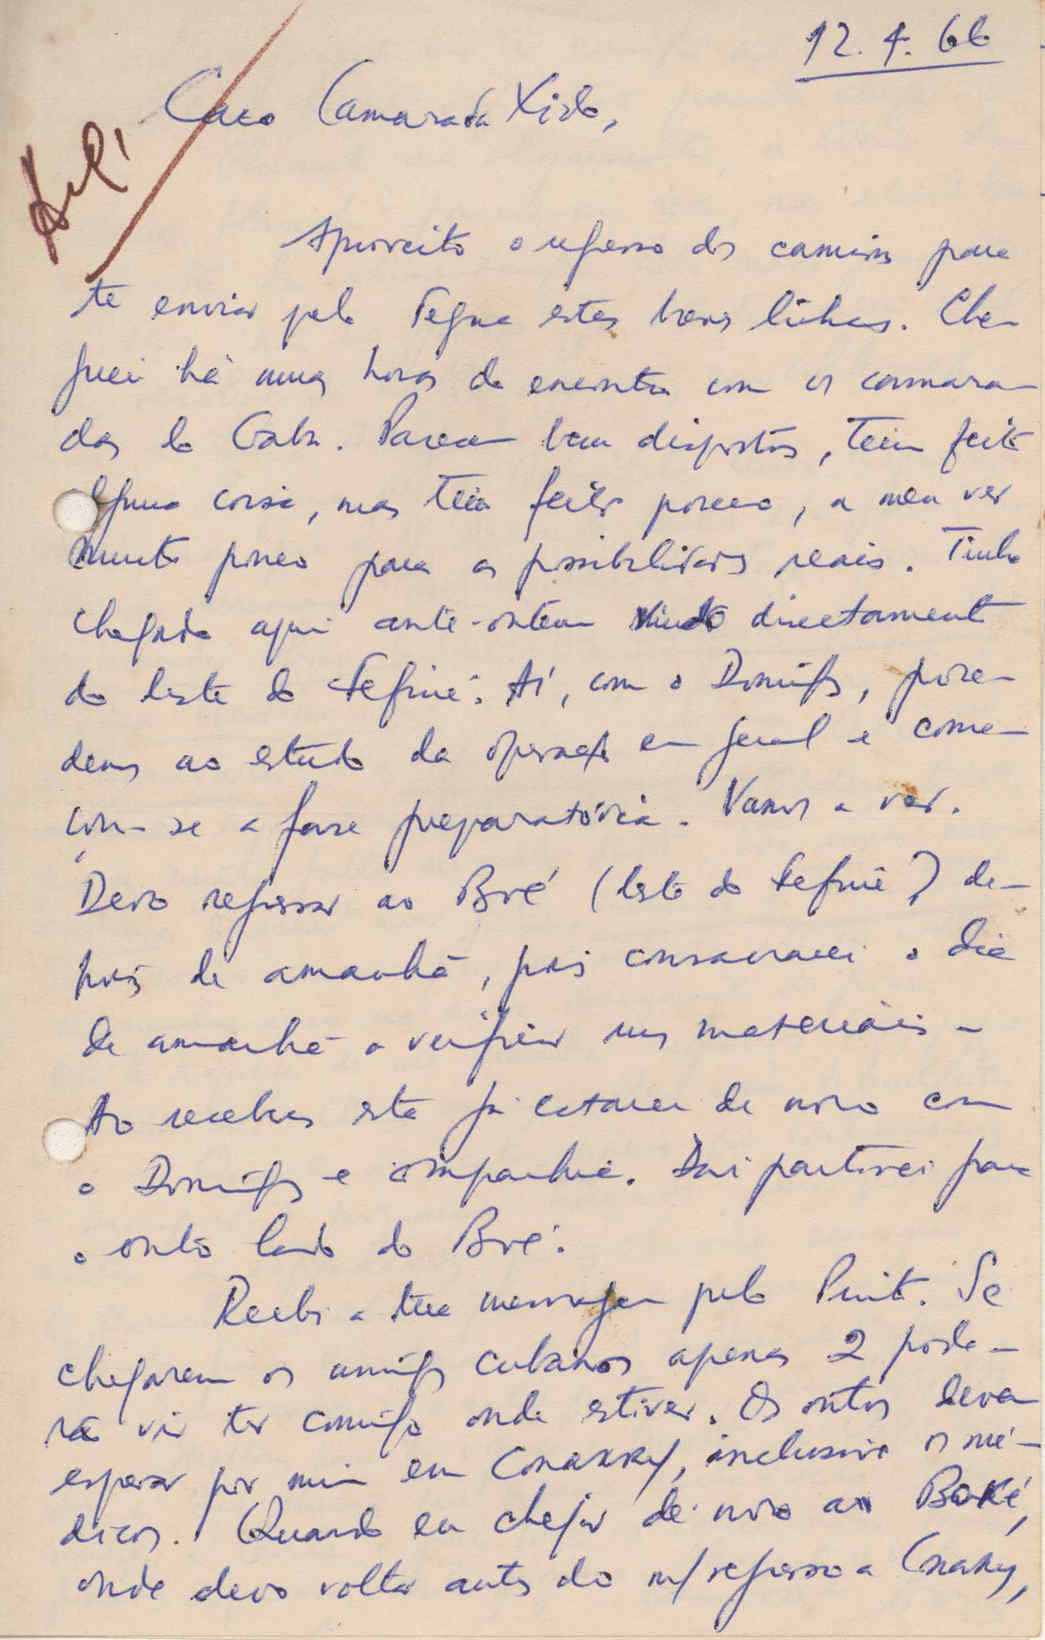 12.4.66
Caro Camarada Xido,
Aproveito o regresso dos camions para
te enviar pelo Tegna estas breves linhas. Che-
guei há umas horas do encontro com os camara-
das do Gabu. Parecem bem dispostos, teem feito
alguma coisa, mas teem feito pouco, a meu ver
muito pouco para as possibilidades reais. Tinha
chegado aqui ante-ontem vindo directamente
do leste do Fefiné. Aí, com o Domingos, proce-
demos ao estudo da operação em geral e come-
çou-se a fase preparatória. Vamos a ver.
Devo regressar ao Boé (leste do Fefiné) de-
pois de amanhã, pois consagrarei o dia
de amanhã a verificar uns materiais -
Ao receberes esta já estarei de novo com
o Domingos e companhia. Daí partirei para
o outo lado do Boé.
Recebi a tua mensagem pelo Pinto. Se
chegarem os amigos cubanos apenas 2 pode-
rá vir ter comigo onde estiver. Os outos devem
esperar por mim em Conakry, inclusive os mé-
dicos. Quando eu chegar de novo ao Boké,
onde devo voltar antes do m/ regresso a Conakry,